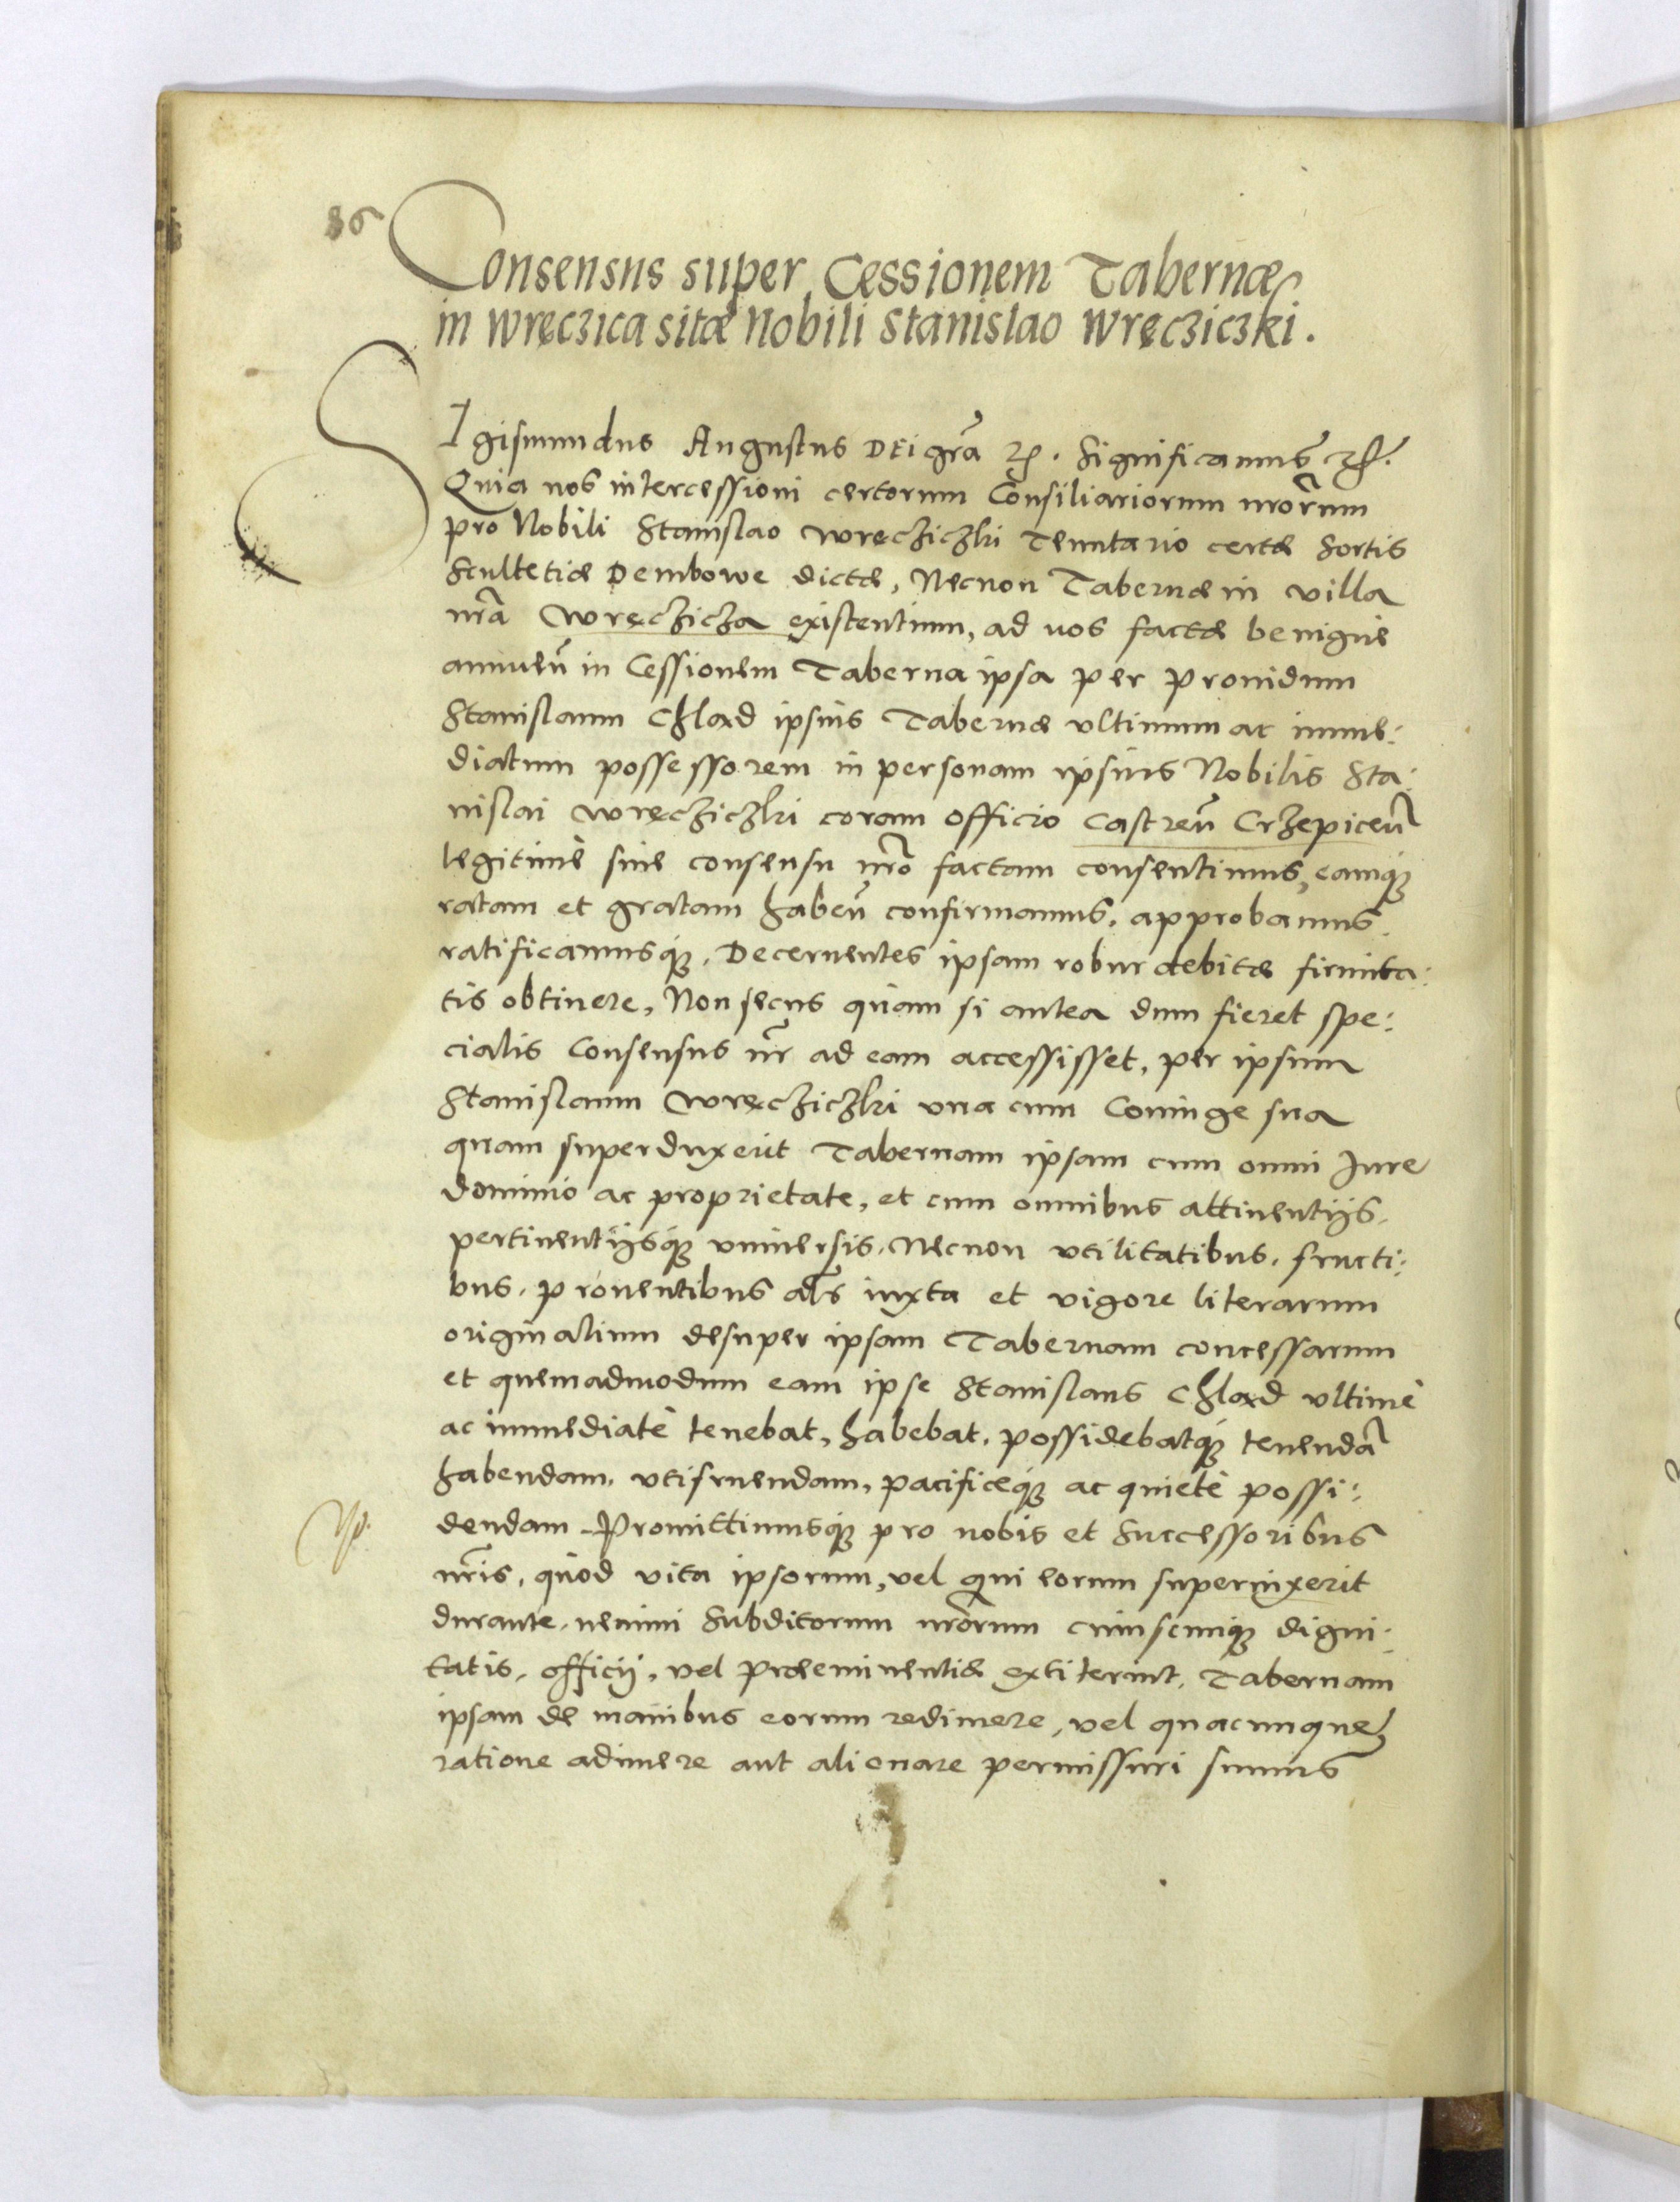 86
Consensus super Cessionem Tabernæ
in Wręczica sitæ Nobili Stanislao Wręcziczki.
SIgismundus Augustus DEi grã etc. Significamus etc.
Quia nos intercessioni certorum Consiliariorum nrõrum
pro Nobili Stanislao Wręcziczki Tenutario certæ Sortis
Scultetiæ Dembowe dictæ, Necnon Tabernæ in villa
nrã Wręczicza existentium, ad nos factæ benigne
annueñ in Cessionem Taberna ipsa per Prouidum
Stanislaum Chład ipsius Tabernæ vltimum ac imme:
diatum possessorem in personam ipsius Nobilis Sta:
nislai Wręcziczki coram Officio Castreñ Crzepiceñ
legitimè sine consensu nrõ factam consentimus, eamq;
ratam et gratam habeñ confirmamus, approbamus
ratificamusq;. Decernentes ipsam robur debitæ firmita:
tis obtinere, Non secus quàm si antea dum fieret spe:
cialis Consensus nr̃ ad eam accessisset, per ipsum
Stanislaum Wręcziczki vna cum Coniuge sua
quam superduxerit Tabernam ipsam cum omni Jure
dominio ac proprietate, et cum omnibus attinentijs,
pertinentijsq; vniuersis, Necnon vtilitatibus, fructi:
bus, prouentibus al̃s iuxta et vigore literarum
originalium desuper ipsam Tabernam concessarum
et quemadmodum eam ipse Stanislaus Chład vltimè
ac immediatè tenebat, habebat, possidebatq; tenendã
habendam, vtifruendam, pacificeq; ac quietè possi:
dendam. Promittimusq; pro nobis et Successoribus
nrĩs, quòd vita ipsorum, vel qui eorum superuixerit
durante, nemini Subditorum nrõrum cuiuscunq; digni:
tatis, officij, vel præeminentiæ extiterint, Tabernam
ipsam de manibus eorum redimere, vel quacunque
ratione adimere aut alienare permissuri sumus